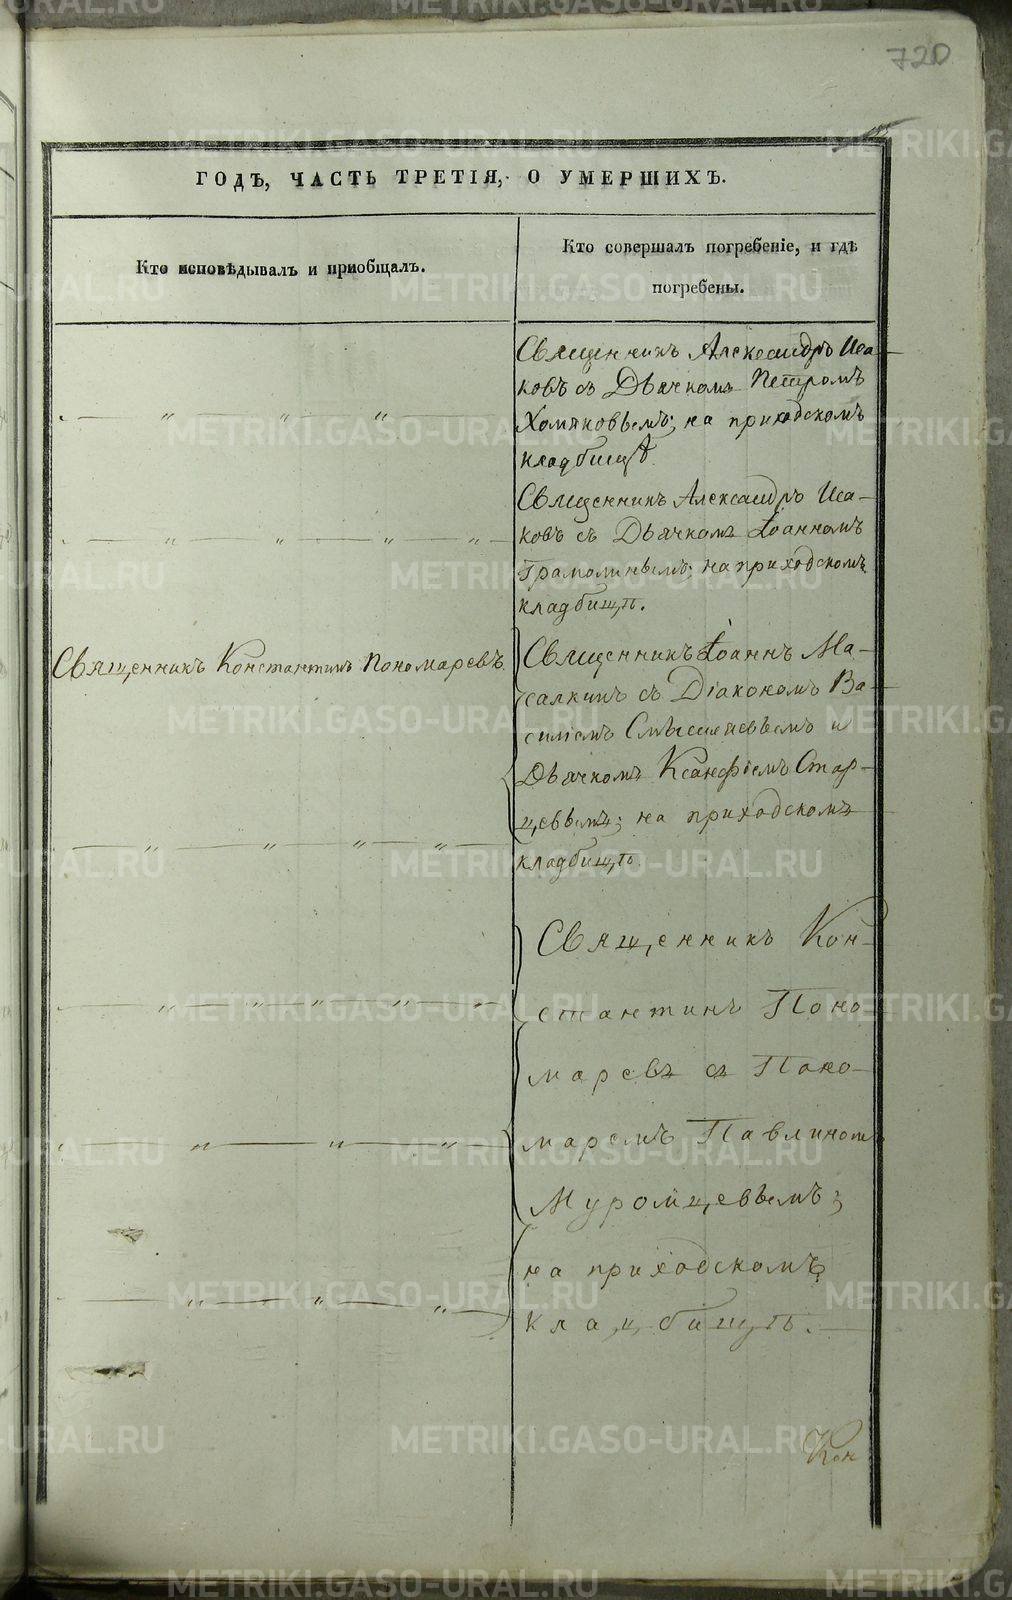 720
ГОДЪ, ЧАСТЬ ТРЕТІЯ, О УМЕРШИХЪ.
Кто исповѣдывалъ и пріобщалъ.
Кто совершалъ погребеніе, и гдѣ
погребены.
Священникъ Александръ Иса-
ковъ съ Дьячкомъ Петромъ
Хомяковымъ; на приходскомъ
кладбищѣ.
Священникъ Александръ Иса-
ковъ съ Дьячкомъ Іоанномъ
Грамолинымъ; на приходскомъ
кладбищѣ.
Священникъ Константинъ Пономаревъ
Священникъ Іоаннъ Ма-
салкинъ съ Діакономъ Ва-
силіемъ и
Дьячкомъ Ксанфіемъ Стар-
цевымъ; на приходскомъ
кладбищѣ.
Священникъ Кон-
стантинъ Поно
маревъ съ Поно-
маремъ Павлиномъ
Муромцевымъ;
на приходскомъ
кладбищѣ.
Кон
METRIKI.GASO-URAL.RU